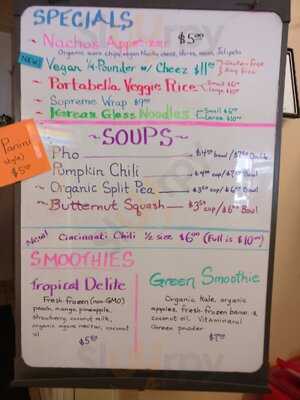 SPECIALS
~ Nachos Appetizer $5.00
Organic corn chips, vegan Nacho cheez, olives, onion, Jalapeño
NEW Vegan ¼-Pounder w/ Cheez $11.00 Gluten-Free Soy Free
~ Portabella Veggie Rice - Small $6.00 Large $10.00
~ Supreme Wrap $9.00
~ Korean Glass Noodles - Small $6.00 Large $10.00
Panini style) $5.00
~SOUPS~
Pho $4.50 bowl/$7.50 Double
Pumpkin Chili $4.00 cup/$7.00 Bowl
~ Organic Split Pea $3.50 cup/$6.00 Bowl
~ Butternut Squash $3.50 cup/$6.00 Bowl
New! Cincinnati Chili ½ size $6.00 (Full is $10.00)
SMOOTHIES
Tropical Delite
Fresh frozen (non-GMO)
peach, mango, pineapple,
strawberry, coconut milk,
organic agave nectar, coconut
oil
$5.50
Green Smoothie
Organic Kale, organic
apples, fresh-frozen banana, &
coconut oil.
Green powder